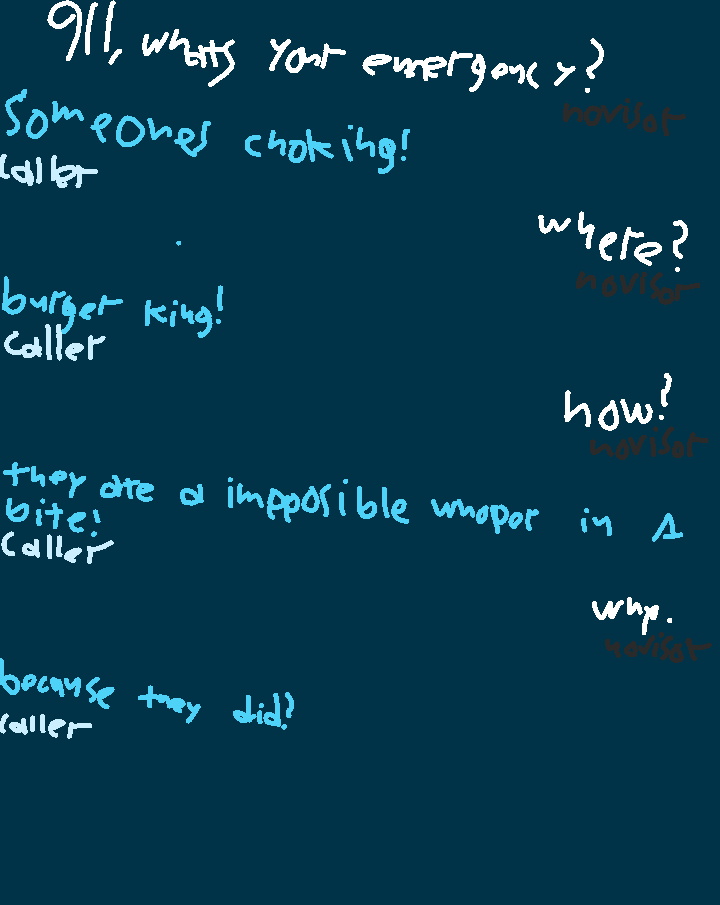 911, whats your emergency?
novisor
Someones choking!
Caller
where?
novisor
burger king!
Caller
how?
novisor
they ate a impposible whopor in 1
bite!
Caller
why.
novisor
because they did?
Caller